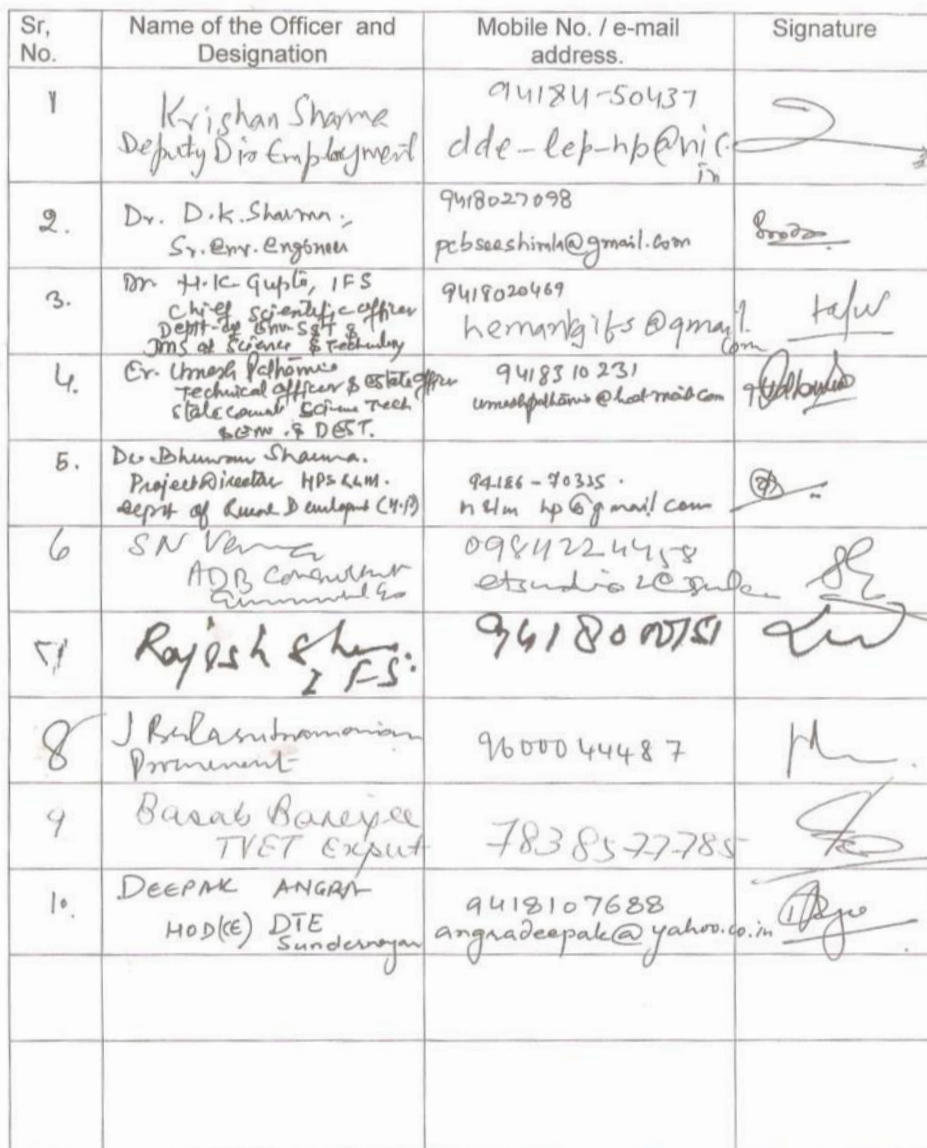 Sr, No.
Name of the Officer and Designation
Mobile No. / e-mail address.
Signature
1
Krishan Sharma
Deputy Dir Employment
94184-50437
dde-lep-hp@nic.in
2.
Dr. D.K. Sharma
Sr. Env. Engineer
9418027098
pcbseeshimla@gmail.com
3.
Dr H.K. Gupta, IFS
Chief Scientific officer
Deptt. of Env. S&T &
of Science & Technology
9418020469
hemankgifs@gmail.com
4.
Er. Umesh Pathania
Technical officer & Estate officer
State Council Science Tech
& Env. & DEST.
9418310231
umeshpathania@hotmail.com
5.
Dr Bhuwan Sharma.
Project Director HPSRLM.
Deptt of Rural Development (H.P)
94186-70335.
nrlm hp@gmail com
6
SN Verma
ADB Consultant
09841224458
7
Rajesh
IFS.
8
J Balasubramanian
9600044487
9
Basab Banerjee
TVET Expert
7838577785
10.
DEEPAK ANGRA
HOD(CE) DTE
Sundernagar
9418107688
angradeepak@yahoo.co.in